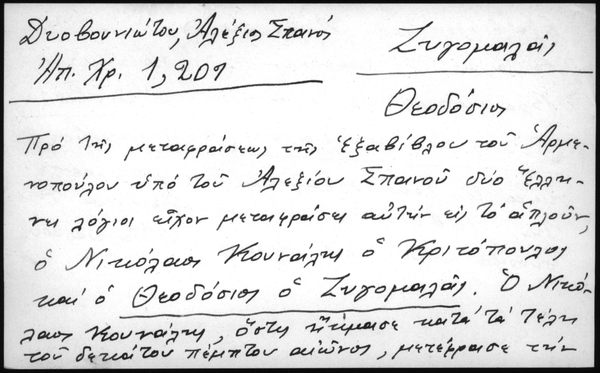 Δυοβουνιώτου, Ἀλέξιος Σπανός
Ζυγομαλᾶς
Ἀπ. Χρ. 1, 201
Θεοδόσιος
Πρὸ τῆς μεταφράσεως τῆς ἑξαβίβλου τοῦ Ἁρμε-
νοπούλου ὑπὸ τοῦ Ἀλεξίου Σπανοῦ δύο Ἕλλη-
νες λόγιοι εἶχον μεταφράσει αὐτὴν εἰς τὸ ἁπλοῦν,
ὁ Νικόλαος Κουνάλης ὁ Κριτόπουλος
καὶ ὁ Θεοδόσιος ὁ Ζυγομαλᾶς. Ὁ Νικό-
λαος Κουνάλης, ὅστις ἤκμασε κατὰ τὰ τέλη
τοῦ δεκάτου πέμπτου αἰῶνος, μετέφρασε τὴν